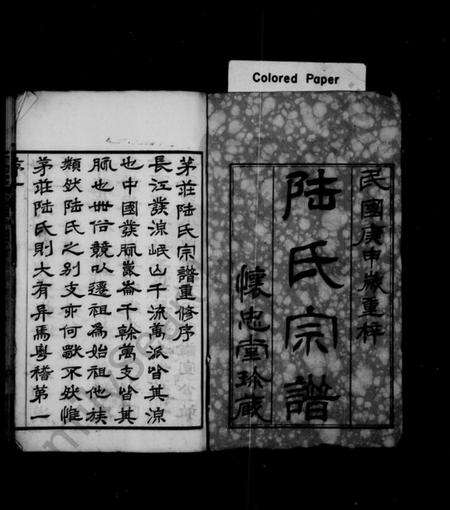 Colored Paper
民國庚申歲重梓
陸氏宗譜
懷忠堂珍藏
茅莊陸氏宗譜重修序
長江發源岷山千流萬派皆其源
也中國發脈崑崙千榦萬支皆其
脈也世俗競以遷祖為始祖他族
類然陸氏之別支亦何獸不然惟
茅莊陸氏則大有異焉粵稽第一